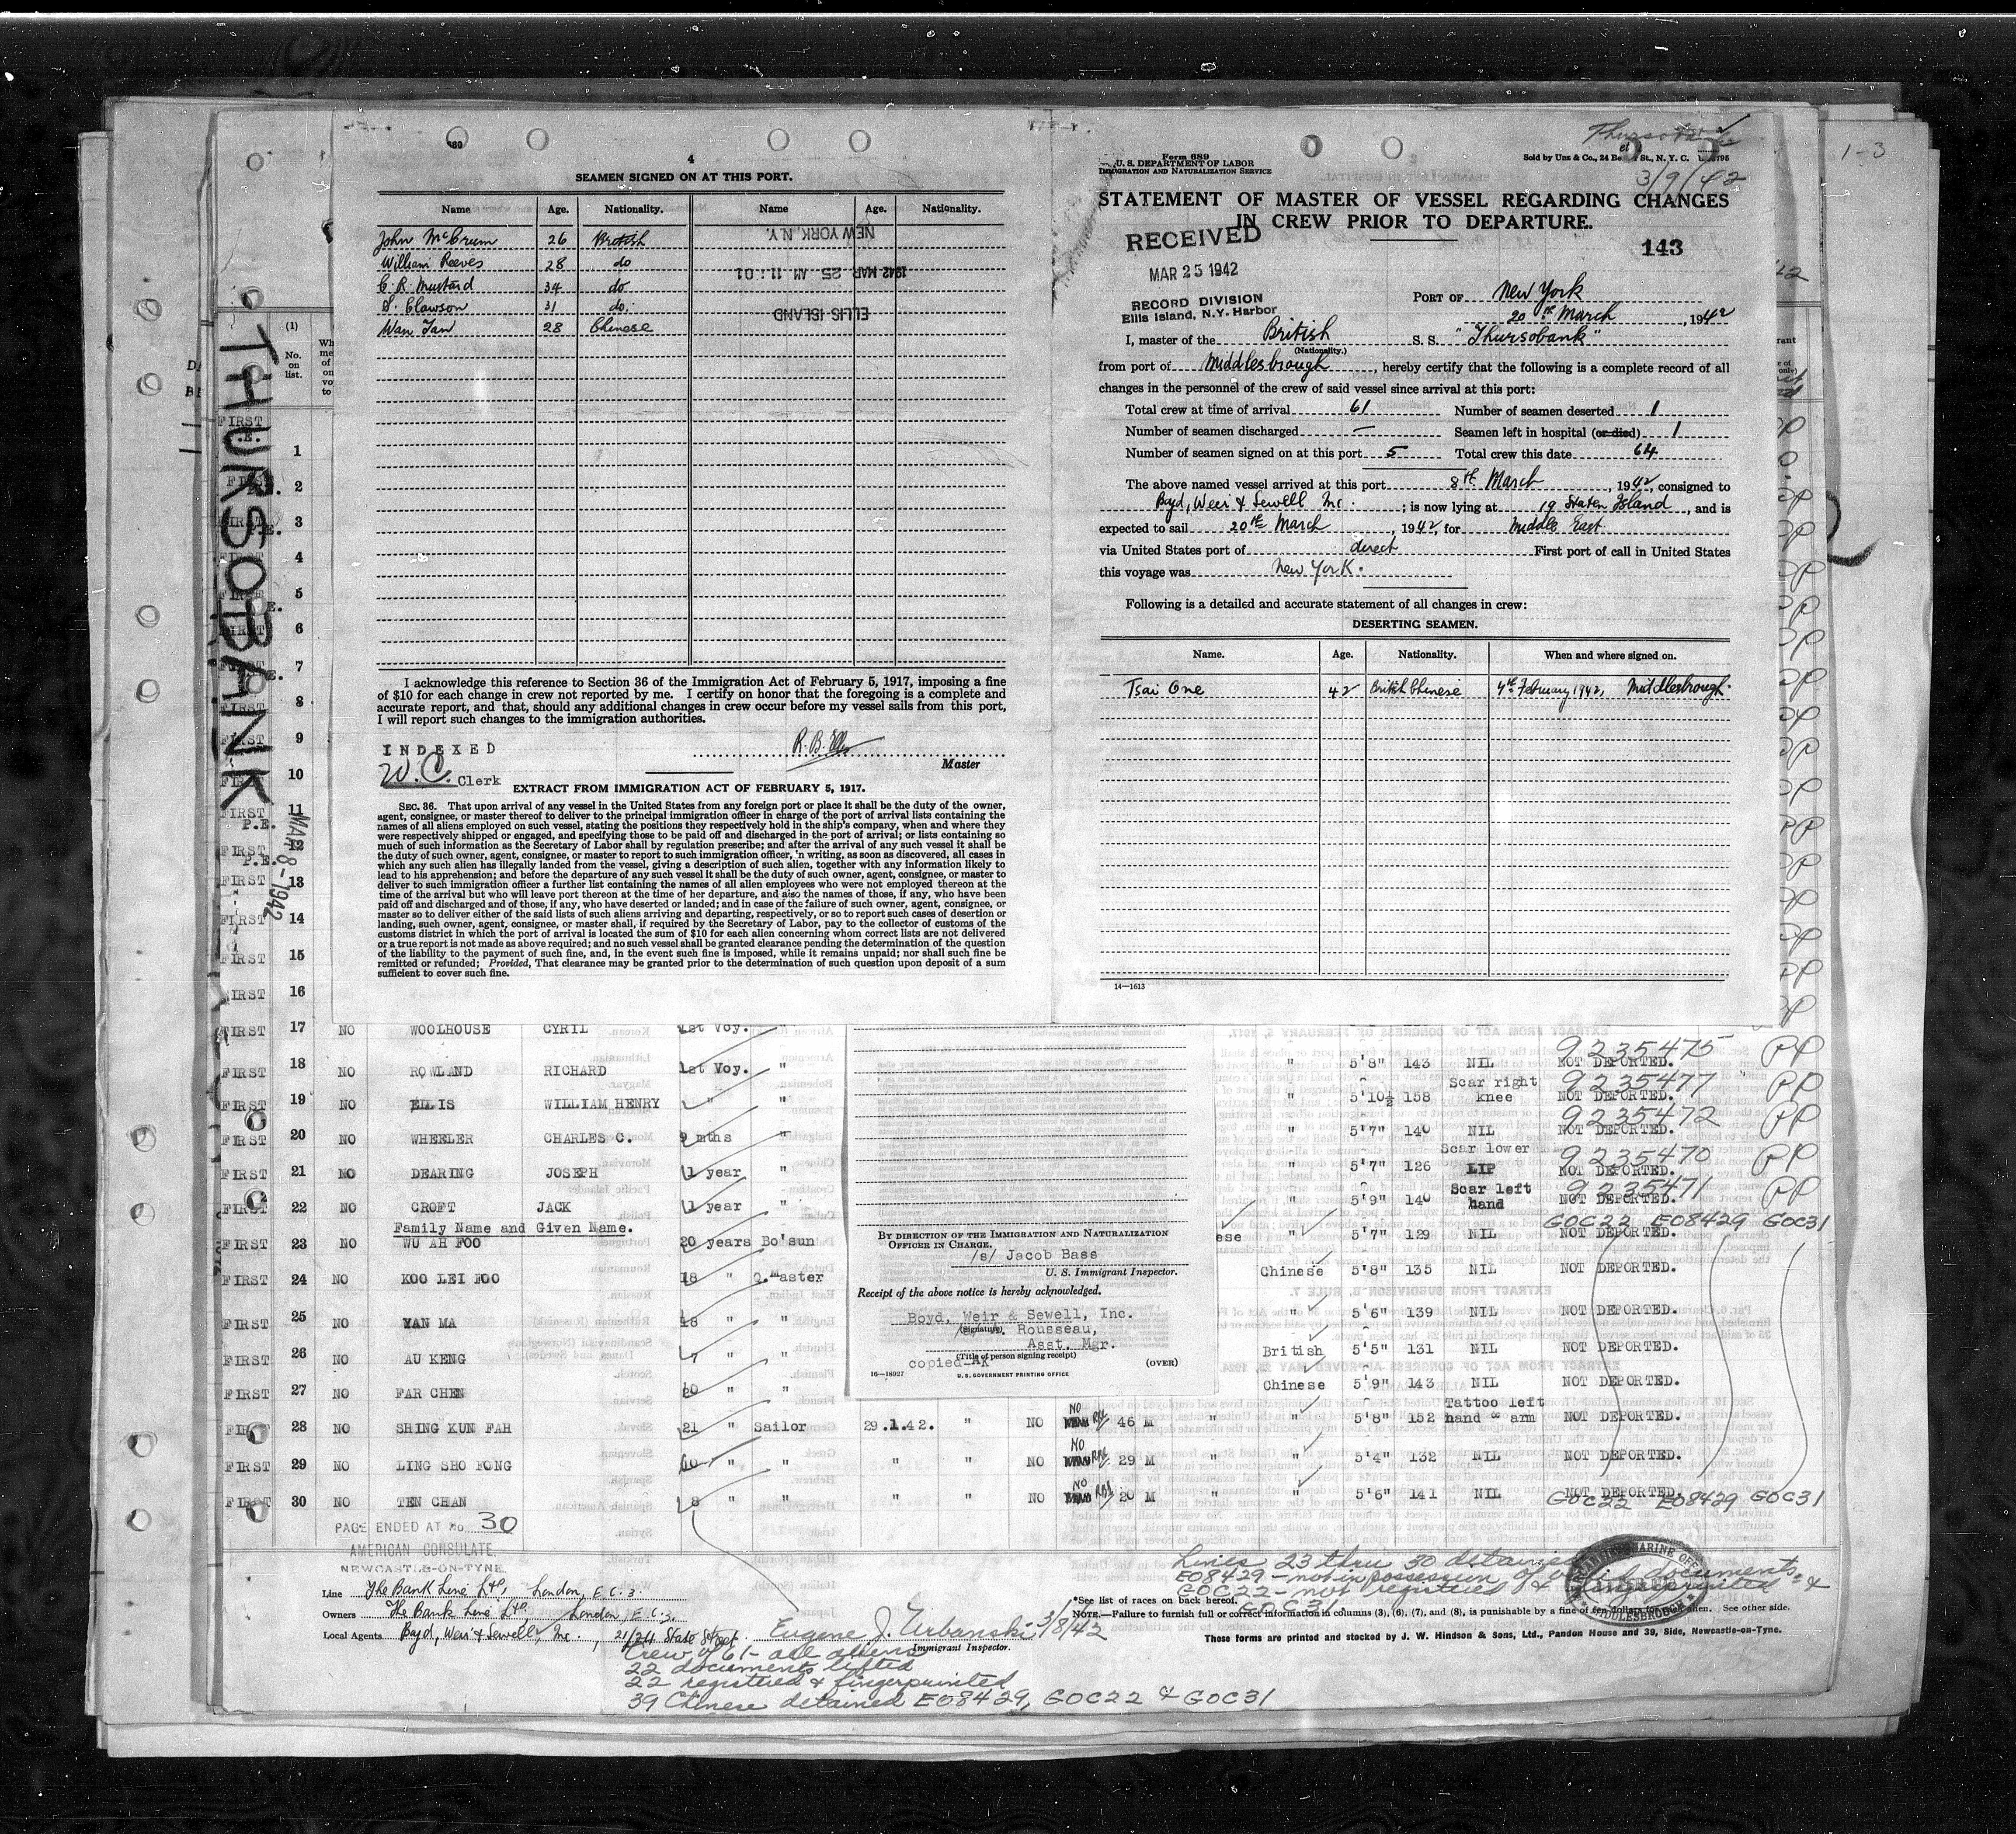 4
SEAMEN SIGNED ON AT THIS PORT.
Name Age. Nationality. Name Age. Nationality.
John McCrum 26 British
William Reeves 28 do
C. R. Mustard 34 do
S. Clowson 31 do.
Wan Tan 28 Chinese
NEW YORK, N.Y.
1942 MAR 25 AM 11:01
ELLIS ISLAND
I acknowledge this reference to Section 36 of the Immigration Act of February 5, 1917, imposing a fine
of $10 for each change in crew not reported by me. I certify on honor that the foregoing is a complete and
accurate report, and that, should any additional changes in crew occur before my vessel sails from this port,
I will report such changes to the immigration authorities.
INDEXED
W.C. Clerk
R. B. Ellis
Master
EXTRACT FROM IMMIGRATION ACT OF FEBRUARY 5, 1917.
SEC. 36. That upon arrival of any vessel in the United States from any foreign port or place it shall be the duty of the owner,
agent, consignee, or master thereof to deliver to the principal immigration officer in charge of the port of arrival lists containing the
names of all aliens employed on such vessel, stating the positions they respectively hold in the ship's company, when and where they
were respectively shipped or engaged, and specifying those to be paid off and discharged in the port of arrival; or lists containing so
much of such information as the Secretary of Labor shall by regulation prescribe; and after the arrival of any such vessel it shall be
the duty of such owner, agent, consignee, or master to report to such immigration officer, in writing, as soon as discovered, all cases in
which any such alien has illegally landed from the vessel, giving a description of such alien, together with any information likely to
lead to his apprehension; and before the departure of any such vessel it shall be the duty of such owner, agent, consignee, or master to
deliver to such immigration officer a further list containing the names of all alien employees who were not employed thereon at the
time of the arrival but who will leave port thereon at the time of her departure, and also the names of those, if any, who have been
paid off and discharged and of those, if any, who have deserted or landed; and in case of the failure of such owner, agent, consignee, or
master so to deliver either of the said lists of such aliens arriving and departing, respectively, or so to report such cases of desertion or
landing, such owner, agent, consignee, or master shall, if required by the Secretary of Labor, pay to the collector of customs of the
customs district in which the port of arrival is located the sum of $10 for each alien concerning whom correct lists are not delivered
or a true report is not made as above required; and no such vessel shall be granted clearance pending the determination of the question
of the liability to the payment of such fine, and, in the event such fine is imposed, while it remains unpaid; nor shall such fine be
remitted or refunded; Provided, That clearance may be granted prior to the determination of such question upon deposit of a sum
sufficient to cover such fine.
Thursobank
3/9/42
1-3
Form 689
U. S. DEPARTMENT OF LABOR
IMMIGRATION AND NATURALIZATION SERVICE
Sold by Unz & Co., 24 St., N. Y. C.
STATEMENT OF MASTER OF VESSEL REGARDING CHANGES
IN CREW PRIOR TO DEPARTURE.
143
RECEIVED
MAR 25 1942
RECORD DIVISION
Ellis Island, N.Y. Harbor
PORT OF New York
20th March, 1942
I, master of the British S. S. "Thursobank"
(Nationality.)
from port of Middlesbrough, hereby certify that the following is a complete record of all
changes in the personnel of the crew of said vessel since arrival at this port:
Total crew at time of arrival 61 Number of seamen deserted 1
Number of seamen discharged — Seamen left in hospital (or died) 1
Number of seamen signed on at this port 5 Total crew this date 64
The above named vessel arrived at this port 8th March, 1942, consigned to
Boyd, Weir & Sewell Inc.; is now lying at 19 Staten Island, and is
expected to sail 20th March, 1942, for Middle East
via United States port of direct First port of call in United States
this voyage was New York.
Following is a detailed and accurate statement of all changes in crew:
DESERTING SEAMEN.
Name. Age. Nationality. When and where signed on.
Tsai One 42 British Chinese 4th February 1942, Middlesbrough.
14—1613
THURSOBANK
MAR 8-1942
(1)
No. on list.
FIRST 1
2
3
4
5
6
7
8
9
10
11
12
13
14
15
16
FIRST 17 NO WOOLHOUSE CYRIL 1st Voy. "
FIRST 18 NO ROWLAND RICHARD 1st Voy. " " 5'8" 143 NIL 9235475 NOT DEPORTED. PP
FIRST 19 NO ELLIS WILLIAM HENRY " " " 5'10½ 158 Scar right knee 9235477 NOT DEPORTED. PP
FIRST 20 NO WHEELER CHARLES C. 9 mths " " 5'7" 140 NIL 9235472 NOT DEPORTED. PP
FIRST 21 NO DEARING JOSEPH 1 year " " 5'7" 126 Scar lower LIP 9235470 NOT DEPORTED. PP
FIRST 22 NO CROFT JACK 1 year " " 5'9" 140 Scar left hand 9235471 NOT DEPORTED. PP
Family Name and Given Name.
GOC22 E08429 GOC31
FIRST 23 NO WU AH FOO 20 years Bo'sun ese " 5'7" 129 NIL NOT DEPORTED.
FIRST 24 NO KOO LEI FOO 18 " Q.master Chinese 5'8" 135 NIL NOT DEPORTED.
FIRST 25 NO YAN MA 18 " " " 5'6" 139 NIL NOT DEPORTED.
FIRST 26 NO AU KENG 7 " " British 5'5" 131 NIL NOT DEPORTED.
FIRST 27 NO FAR CHEN 20 " " Chinese 5'9" 143 NIL NOT DEPORTED.
FIRST 28 NO SHING KUN FAH 21 " Sailor 29.1.42. " NO NO 46 M " " 5'8" 152 Tattoo left hand & arm NOT DEPORTED.
FIRST 29 NO LING SHO FONG 10 " " " " NO NO 29 M " " 5'4" 132 NIL NOT DEPORTED.
FIRST 30 NO TEN CHAN 8 " " " " NO NO 20 M " " 5'6" 141 NIL NOT DEPORTED.
GOC22 E08429 GOC31
BY DIRECTION OF THE IMMIGRATION AND NATURALIZATION
OFFICER IN CHARGE.
/s/ Jacob Bass
U. S. Immigrant Inspector.
Receipt of the above notice is hereby acknowledged.
Boyd, Weir & Sewell, Inc.
(Signature) Rousseau,
Asst. Mgr.
(Title of person signing receipt)
copied AK
(OVER)
16—18927 U. S. GOVERNMENT PRINTING OFFICE
PAGE ENDED AT No. 30
AMERICAN CONSULATE,
NEWCASTLE-ON-TYNE
Line The Bank Line Ltd, London, E.C.3.
Owners The Bank Line Ltd, London, E.C.3.
Local Agents Boyd, Weir & Sewell, Inc., 21/24 State Street.
Eugene J. Urbanski 3/8/42
Immigrant Inspector.
Crew of 61- all aliens
22 documents lifted
22 registered & fingerprinted
39 Chinese detained E08429, GOC22 & GOC31
Lines 23 thru 30 detained
E08429 - not in possession of valid documents: &
GOC22 - not registered & fingerprinted
GOC31
*See list of races on back hereof.
NOTE.—Failure to furnish full or correct information in columns (3), (6), (7), and (8), is punishable by a fine of ten dollars for each alien. See other side.
These forms are printed and stocked by J. W. Hindson & Sons, Ltd., Pandon House and 39, Side, Newcastle-on-Tyne.
MIDDLESBROUGH